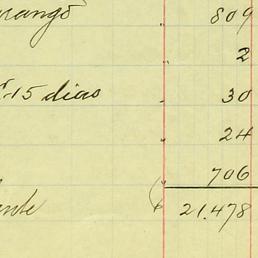 urango " 809
" 2
15 dias " 30
" 24
706
ante 21.478